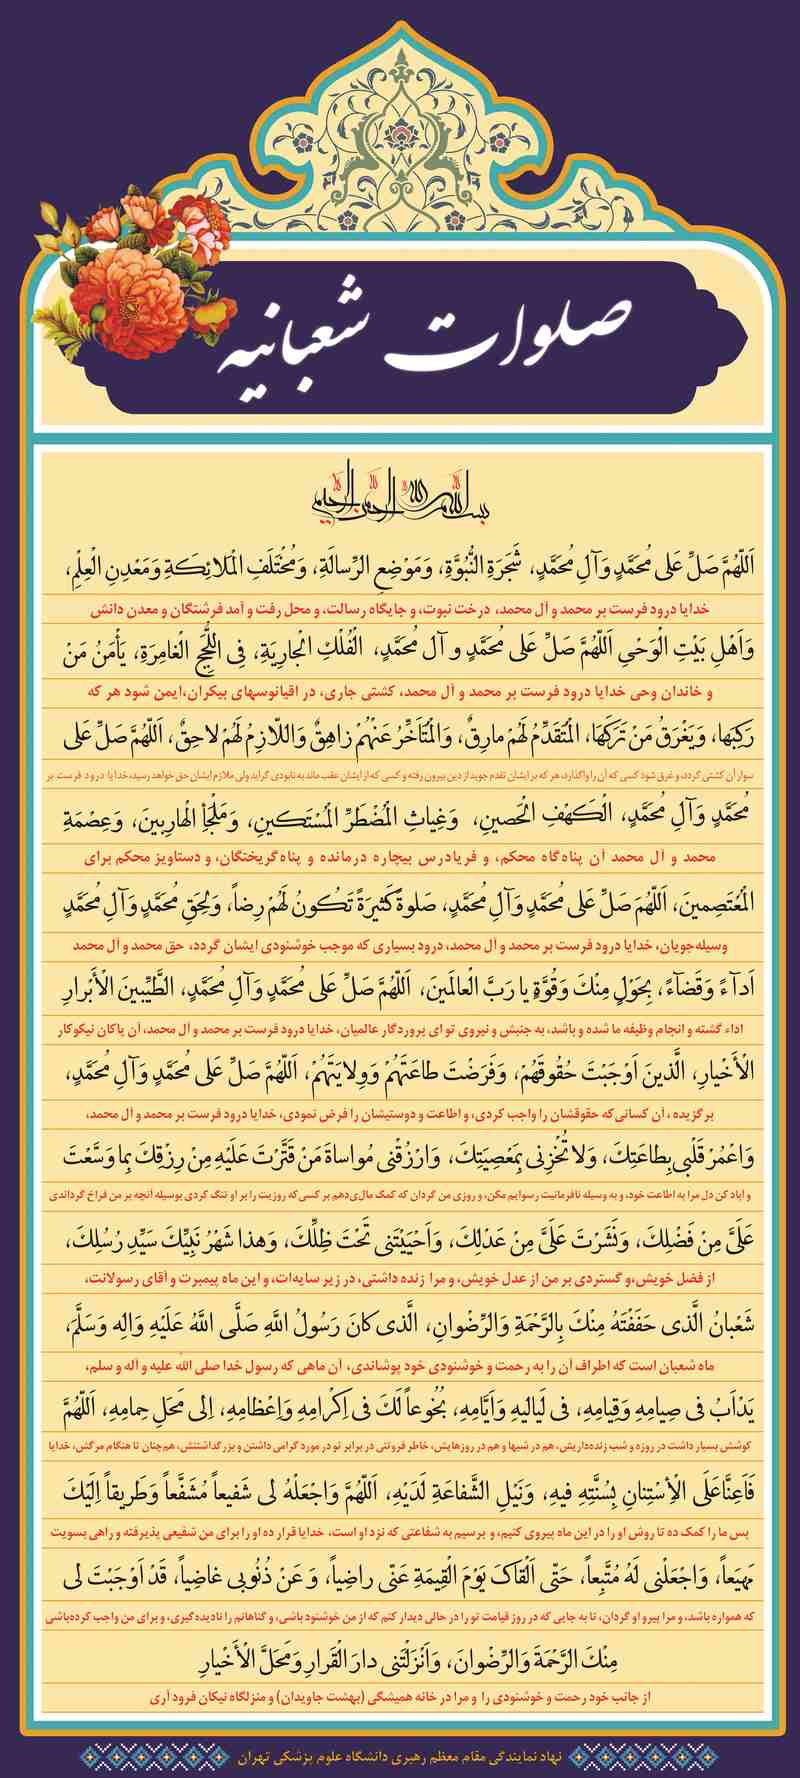 صلوات شعبانیه
بسم الله الرحمن الرحیم
اَللّهُمَّ صَلِّ عَلى مُحَمَّدٍ وَآلِ مُحَمَّدٍ، شَجَرَةِ النُّبُوَّةِ، وَمَوْضِعِ الرِّسالَةِ، وَمُخْتَلَفِ الْمَلائِكَةِ وَمَعْدِنِ الْعِلْمِ،
خدایا درود فرست بر محمد و آل محمد، درخت نبوت، و جایگاه رسالت، و محل رفت و آمد فرشتگان و معدن دانش
وَاَهْلِ بَيْتِ الْوَحْىِ اَللّهُمَّ صَلِّ عَلى مُحَمَّدٍ و آلِ مُحَمَّدٍ، الْفُلْكِ الْجارِيَةِ، فِى اللُّجَجِ الْغامِرَةِ، يَأْمَنُ مَنْ
و خاندان وحی خدایا درود فرست بر محمد و آل محمد، کشتی جاری، در اقیانوسهای بیکران،ایمن شود هر که
رَكِبَها، وَيَغْرَقُ مَنْ تَرَكَهَا، الْمُتَقَدِّمُ لَهُمْ مارِقٌ، وَالْمُتَاَخِّرُ عَنْهُمْ زاهِقٌ وَاللّازِمُ لَهُمْ لاحِقٌ، اَللّهُمَّ صَلِّ عَلى
سوار آن کشتی گردد، و غرق شود کسی که آن را واگذارد، هر که بر ایشان تقدم جوید از دین بیرون رفته و کسی که از ایشان عقب ماند به نابودی گراید ولی ملازم ایشان حق خواهد رسید، خدایا درود فرست بر
مُحَمَّدٍ وَآلِ مُحَمَّدٍ، الْكَهْفِ الْحَصينِ، وَغِياثِ الْمُضْطَرِّ الْمُسْتَكينِ، وَمَلْجَأِ الْهارِبينَ، وَعِصْمَةِ
محمد و آل محمد آن پناه‌گاه محکم، و فریادرس بیچاره درمانده و پناه گریختگان، و دستاویز محکم برای
الْمُعْتَصِمينَ، اَللّهُمَّ صَلِّ عَلى مُحَمَّدٍ وَآلِ مُحَمَّدٍ، صَلوةً كَثيرَةً تَكُونُ لَهُمْ رِضاً، وَلِحَقِّ مُحَمَّدٍ وَآلِ مُحَمَّدٍ
وسیله‌جویان، خدایا درود فرست بر محمد و آل محمد، درود بسیاری که موجب خوشنودی ایشان گردد، حق محمد و آل محمد
اَدآءً وَقَضآءً، بِحَوْلٍ مِنْكَ وَقُوَّةٍ يا رَبَّ الْعالَمينَ، اَللّهُمَّ صَلِّ عَلى مُحَمَّدٍ وَآلِ مُحَمَّدٍ، الطَّيِّبينَ الْأَبْرارِ
اداء گشته و انجام وظیفه ما شده و باشد، به جنبش و نیروی تو ای پروردگار عالمیان، خدایا درود فرست بر محمد و آل محمد، آن پاکان نیکوکار
الْأَخْيارِ، الَّذينَ اَوْجَبْتَ حُقُوقَهُمْ، وَفَرَضْتَ طاعَتَهُمْ وَوِلايَتَهُمْ، اَللّهُمَّ صَلِّ عَلى مُحَمَّدٍ وَآلِ مُحَمَّدٍ،
برگزیده ، آن کسانی‌که حقوقشان را واجب کردی، و اطاعت و دوستیشان را فرض نمودی، خدایا درود فرست بر محمد و آل محمد،
وَاعْمُرْ قَلْبى بِطاعَتِكَ، وَلاتُخْزِنى بِمَعْصِيَتِكَ، وَارْزُقْنى مُواساةَ مَنْ قَتَّرْتَ عَلَيْهِ مِنْ رِزْقِكَ بِما وَسَّعْتَ
و آباد کن دل مرا به اطاعت خود، و به وسیله نافرمانیت رسوایم مکن، و روزی من گردان که کمک مالی‌دهم بر کسی که روزیت را بر او تنگ کردی بوسیله آنچه بر من فراخ گرداندی
عَلَىَّ مِنْ فَضْلِكَ، وَنَشَرْتَ عَلَىَّ مِنْ عَدْلِكَ، وَاَحْيَيْتَنى تَحْتَ ظِلِّكَ، وَهذا شَهْرُ نَبِيِّكَ سَيِّدِ رُسُلِكَ،
از فضل خویش،و گستردی بر من از عدل خویش، و مرا زنده داشتی، در زیر سایه‌ات، و این ماه پیمبرت و آقای رسولانت،
شَعْبانُ الَّذى حَفَفْتَهُ مِنْكَ بِالرَّحْمَةِ وَالرِّضْوانِ، الَّذى كانَ رَسُولُ اللَّهِ صَلَّى اللَّهُ عَلَيْهِ وَالِه وَسَلَّمَ،
ماه شعبان است که اطراف آن را به رحمت و خوشنودی خود پوشاندی، آن ماهی که رسول خدا صلی الله علیه و آله و سلم،
يَدْاَبُ فى صِيامِهِ وَقِيامِهِ، فى لَياليهِ وَاَيَّامِهِ، بُخُوعاً لَكَ فى اِكْرامِهِ وَاِعْظامِهِ، اِلى مَحَلِّ حِمامِهِ، اَللّهُمَّ
کوشش بسیار داشت در روزه و شب زنده‌داریش، هم در شبها و هم در روزهایش، خاطر فروتنی در برابر تو در مورد گرامی داشتن و بزرگداشتنش، هم‌چنان تا هنگام مرگش، خدایا
فَاَعِنَّا عَلَى الْاِسْتِنانِ بِسُنَّتِهِ فيهِ، وَنَيْلِ الشَّفاعَةِ لَدَيْهِ، اَللّهُمَّ وَاجْعَلْهُ لى شَفيعاً مُشَفَّعاً وَطَريقاً اِلَيْكَ
پس ما را کمک ده تا روش او را در این ماه پیروی کنیم، و برسیم به شفاعتی که نزد او است، خدایا قرار ده او را برای من شفیعی پذیرفته و راهی بسویت
مَهيَعاً، وَاجْعَلْنى لَهُ مُتَّبِعاً، حَتّى اَلْقاكَ يَوْمَ الْقِيمَةِ عَنّى راضِياً، وَ عَنْ ذُنُوبى غاضِياً، قَدْ اَوْجَبْتَ لى
که همواره باشد، و مرا پیرو او گردان، تا به جایی که در روز قیامت تو را در حالی دیدار کنم که از من خوشنود باشی، و گناهانم را نادیده گیری، و برای من واجب کرده‌باشی
مِنْكَ الرَّحْمَةَ وَالرِّضْوانَ، وَاَنْزَلْتَنى دارَ الْقَرارِ وَمَحَلَّ الْأَخْيارِ
از جانب خود رحمت و خوشنودی را و مرا در خانه همیشگی (بهشت جاویدان) و منزلگاه نیکان فرود آری
نهاد نمایندگی مقام معظم رهبری دانشگاه علوم پزشکی تهران